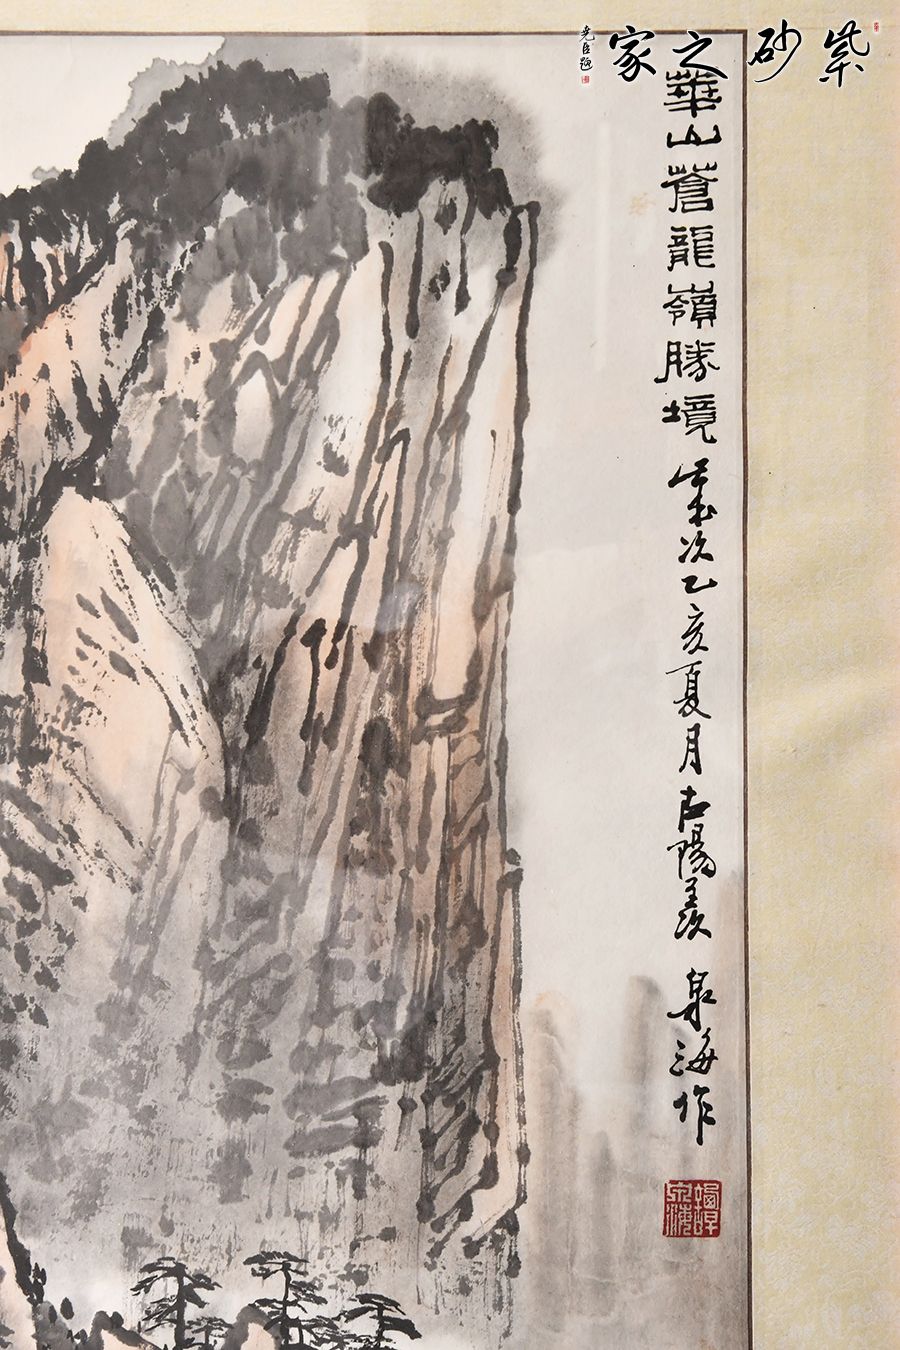 紫砂之家
堯臣題
華山蒼龍嶺勝境歲次乙亥夏月古陽羨泉海作
泉海